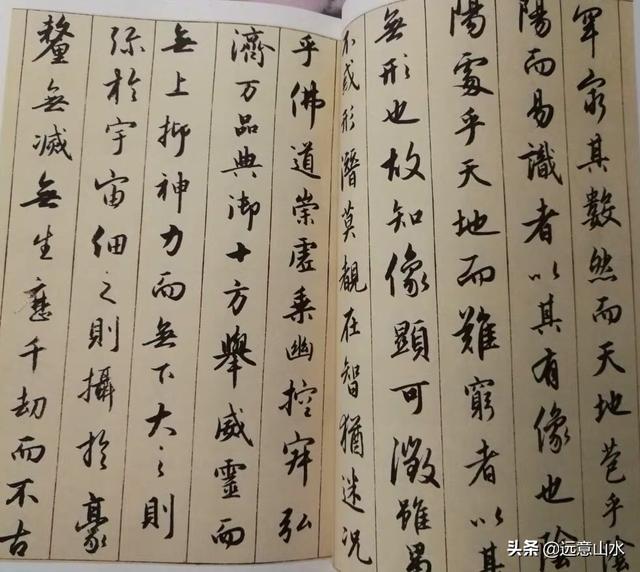 罕窮其數然而天地苞乎陰
陽而易識者以其有像也陰
陽處乎天地而難窮者以其
無形也故知像顯可徵雖愚
不惑形潛莫覩在智猶迷況
乎佛道崇虛乘幽控寂弘
濟万品典御十方舉威靈而
無上抑神力而無下大之則
弥於宇宙細之則攝於豪
釐無滅無生歷千劫而不古
头条 @远意山水